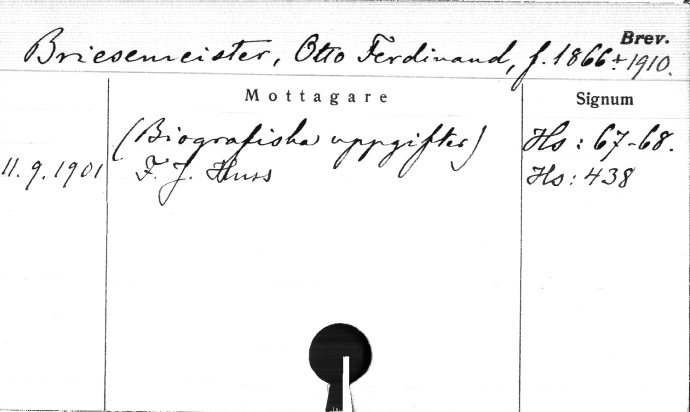 Brev.
Briesemeister, Otto Ferdinand, f. 1866 + 1910.
Mottagare Signum
(Biografiska uppgifter) Hs: 67-68.
11.9.1901 F. J. Huss Hs: 438